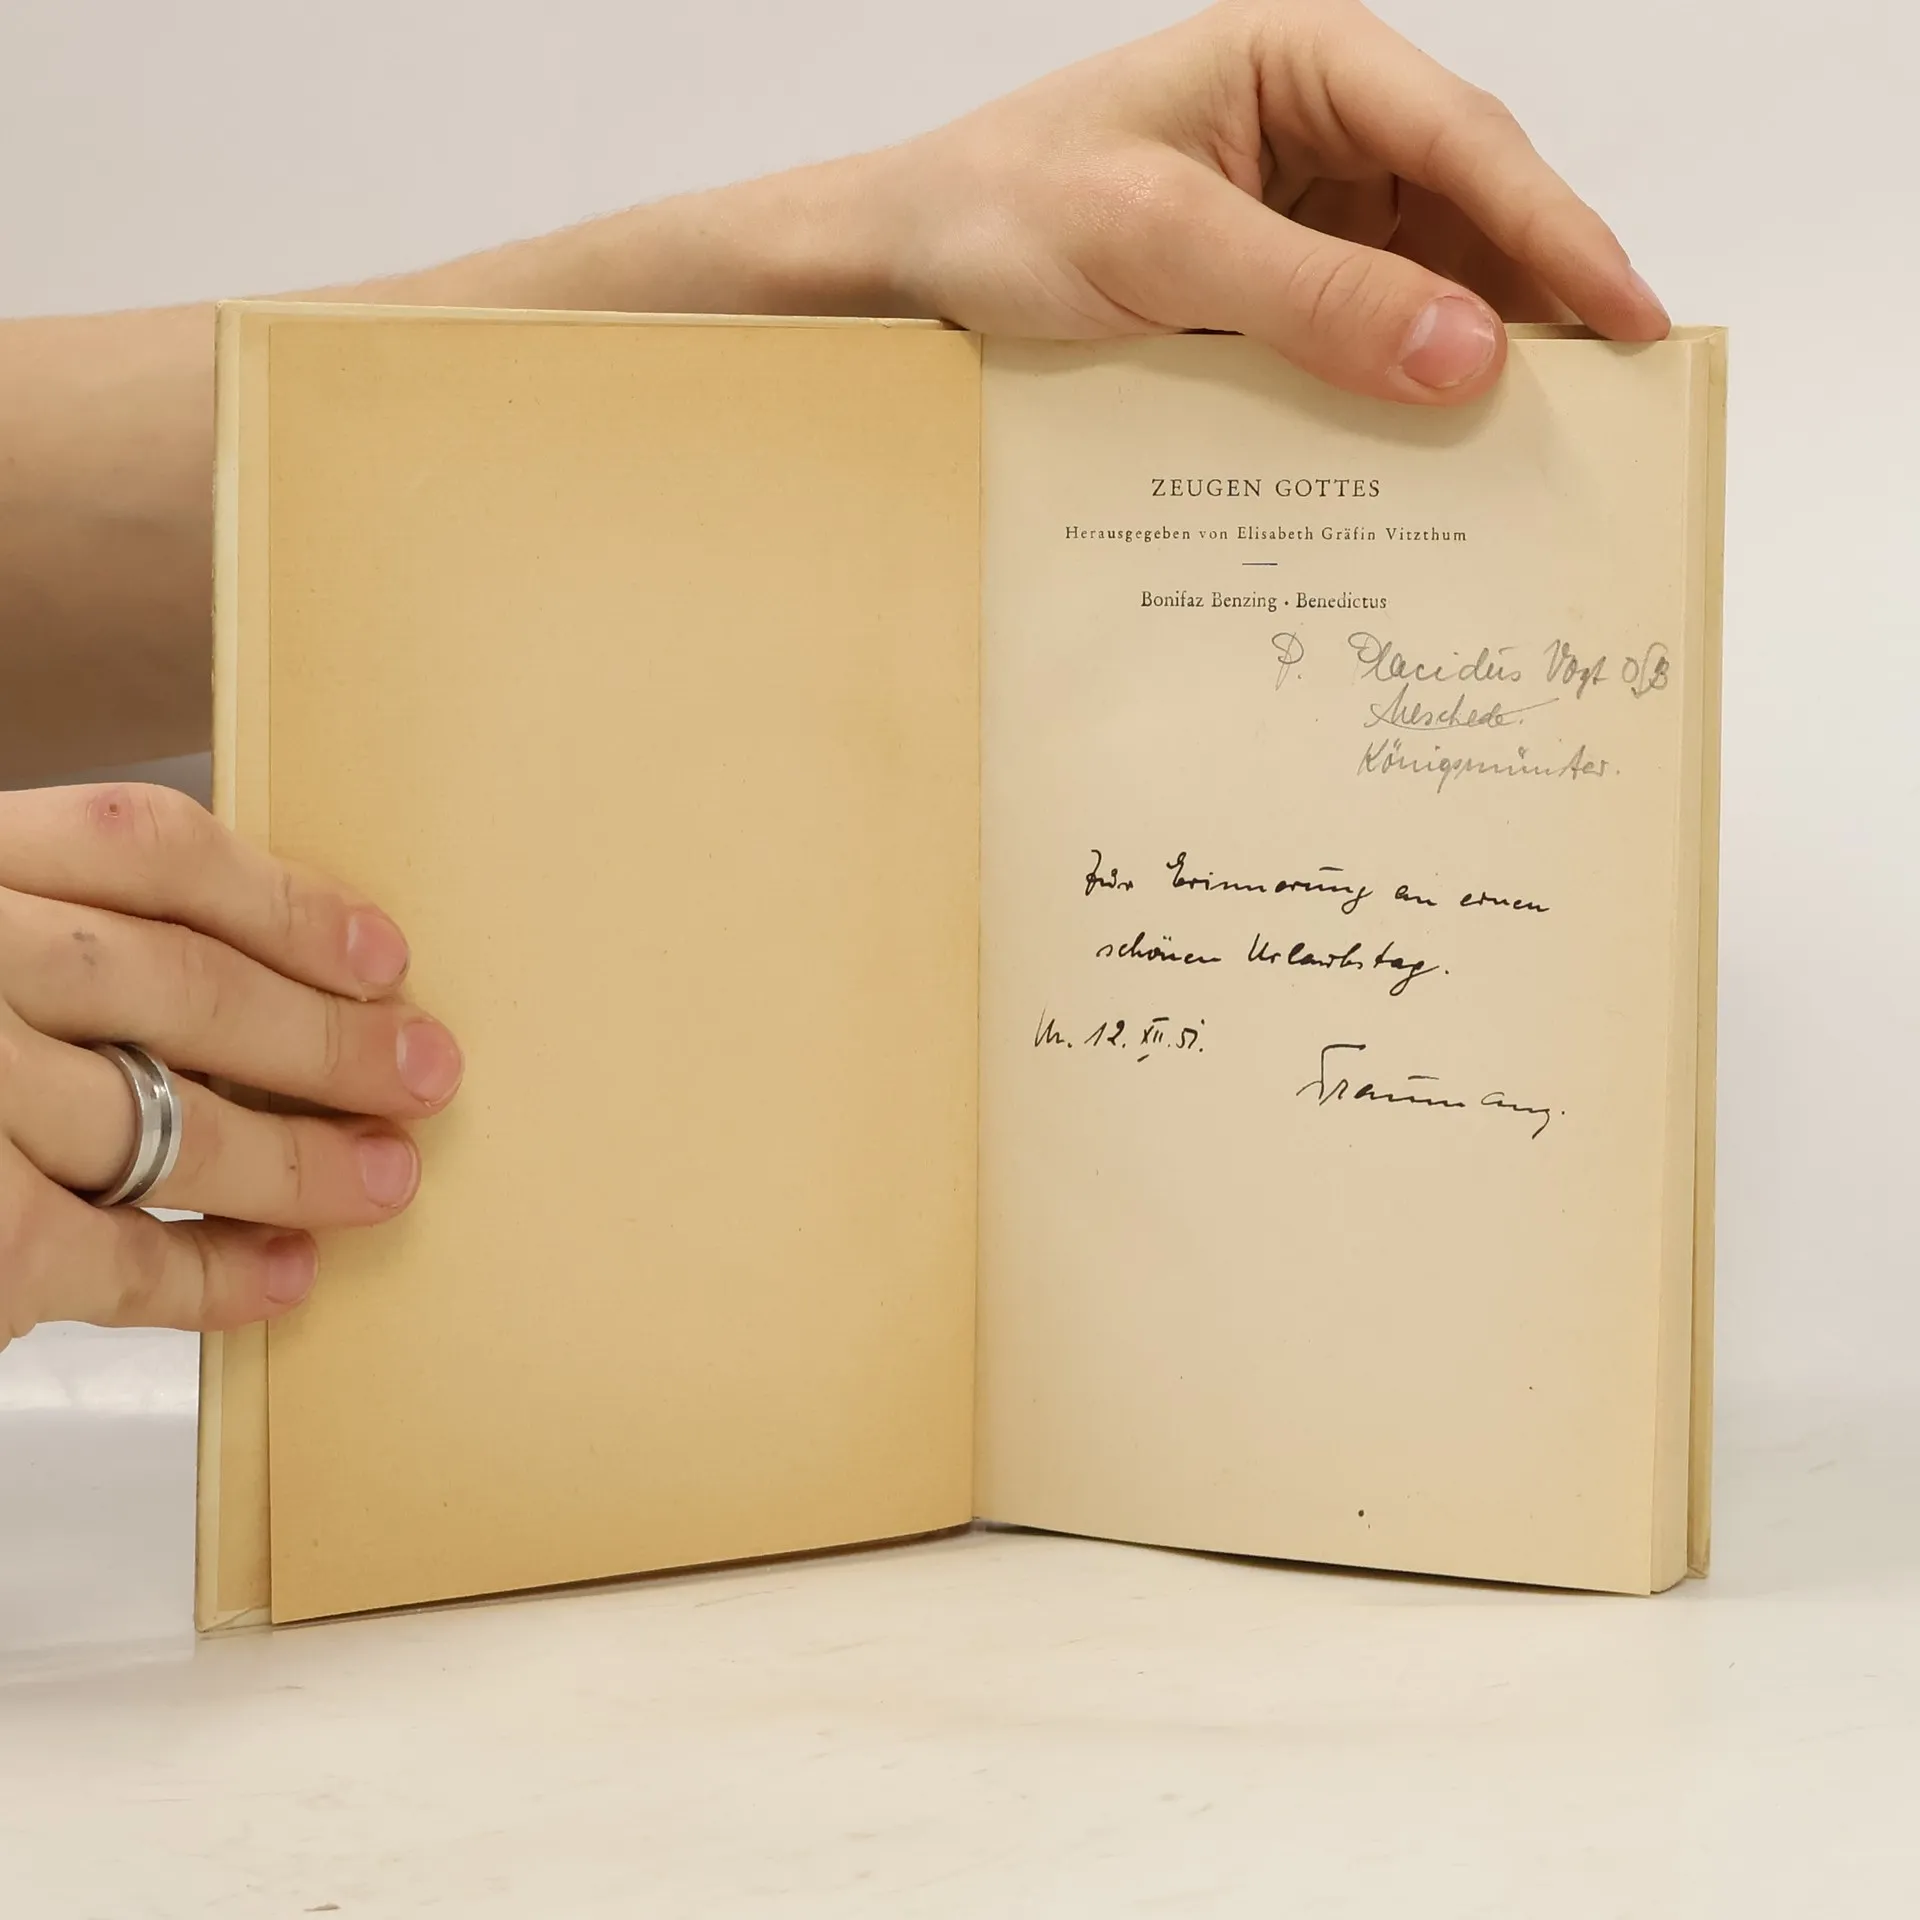 ZEUGEN GOTTES
Herausgegeben von Elisabeth Gräfin Vitzthum
Bonifaz Benzing · Benedictus
P. Placidus Vogt OSB
Meschede.
Königsmünster.
Zur Erinnerung an einen
schönen Urlaubstag.
12. XII. 51.